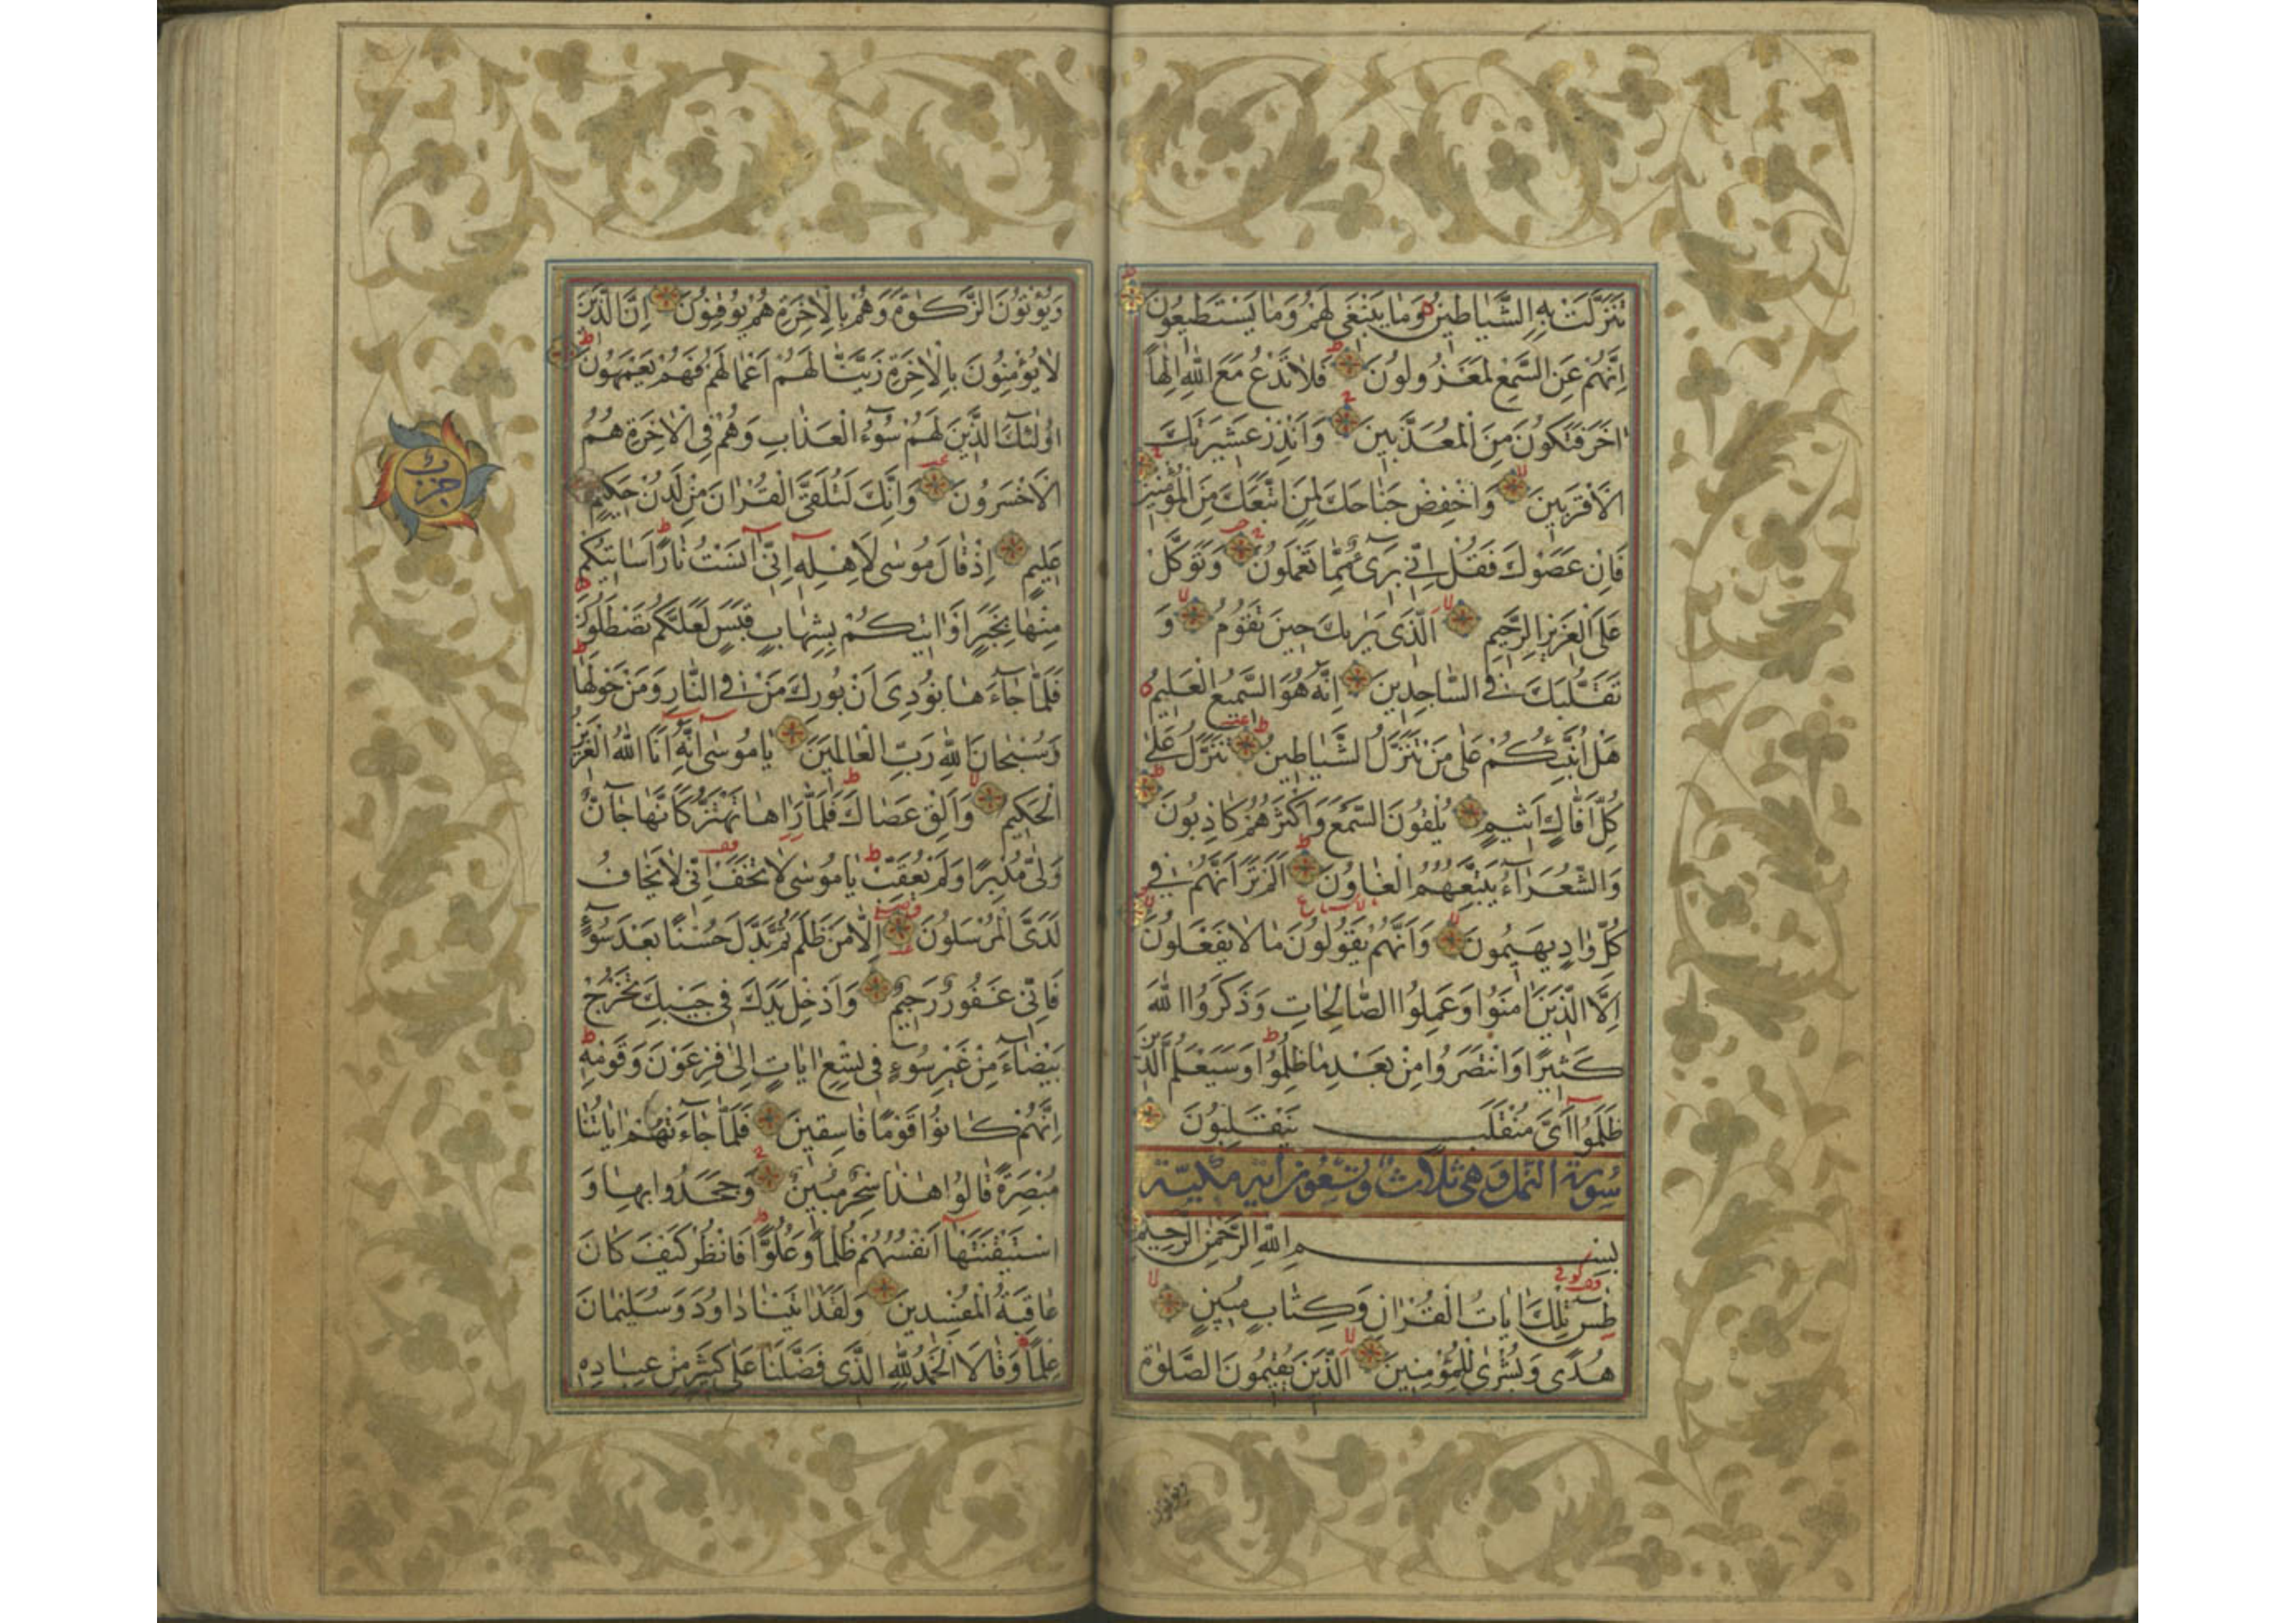 تَنَزَّلَتْ بِهِ الشَّيَاطِينُ وَمَا يَنْبَغِي لَهُمْ وَمَا يَسْتَطِيعُونَ
اِنَّهُمْ عَنِ السَّمْعِ لَمَعْزُولُونَ فَلَا تَدْعُ مَعَ اللّٰهِ اِلٰهًا
اٰخَرَ فَتَكُونَ مِنَ الْمُعَذَّبِينَ وَاَنْذِرْ عَشِيرَتَكَ
الْاَقْرَبِينَ وَاخْفِضْ جَنَاحَكَ لِمَنِ اتَّبَعَكَ مِنَ الْمُؤْمِنِينَ
فَاِنْ عَصَوْكَ فَقُلْ اِنِّي بَرِيءٌ مِمَّا تَعْمَلُونَ وَتَوَكَّلْ
عَلَى الْعَزِيزِ الرَّحِيمِ اَلَّذِي يَرٰيكَ حِينَ تَقُومُ وَ
تَقَلُّبَكَ فِي السَّاجِدِينَ اِنَّهُ هُوَ السَّمِيعُ الْعَلِيمُ
هَلْ اُنَبِّئُكُمْ عَلٰى مَنْ تَنَزَّلُ الشَّيَاطِينُ تَنَزَّلُ عَلٰى
كُلِّ اَفَّاكٍ اَثِيمٍ يُلْقُونَ السَّمْعَ وَاَكْثَرُهُمْ كَاذِبُونَ
وَالشُّعَرَاءُ يَتَّبِعُهُمُ الْغَاوُونَ اَلَمْ تَرَ اَنَّهُمْ فِي
كُلِّ وَادٍ يَهِيمُونَ وَاَنَّهُمْ يَقُولُونَ مَا لَا يَفْعَلُونَ
اِلَّا الَّذِينَ اٰمَنُوا وَعَمِلُوا الصَّالِحَاتِ وَذَكَرُوا اللّٰهَ
كَثِيرًا وَانْتَصَرُوا مِنْ بَعْدِ مَا ظُلِمُوا وَسَيَعْلَمُ الَّذِينَ
ظَلَمُوا اَيَّ مُنْقَلَبٍ يَنْقَلِبُونَ
سُورَةُ النَّمْلِ وَهِيَ ثَلَاثٌ وَتِسْعُونَ اٰيَةً مَكِّيَّة
بِسْمِ اللّٰهِ الرَّحْمٰنِ الرَّحِيمِ
طٰسٓ تِلْكَ اٰيَاتُ الْقُرْاٰنِ وَكِتَابٍ مُبِينٍ
هُدًى وَبُشْرٰى لِلْمُؤْمِنِينَ اَلَّذِينَ يُقِيمُونَ الصَّلٰوةَ
وَيُؤْتُونَ الزَّكٰوةَ وَهُمْ بِالْاٰخِرَةِ هُمْ يُوقِنُونَ اِنَّ الَّذِينَ
لَا يُؤْمِنُونَ بِالْاٰخِرَةِ زَيَّنَّا لَهُمْ اَعْمَالَهُمْ فَهُمْ يَعْمَهُونَ
اُولٰئِكَ الَّذِينَ لَهُمْ سُوءُ الْعَذَابِ وَهُمْ فِي الْاٰخِرَةِ هُمُ
الْاَخْسَرُونَ وَاِنَّكَ لَتُلَقَّى الْقُرْاٰنَ مِنْ لَدُنْ حَكِيمٍ
عَلِيمٍ اِذْ قَالَ مُوسٰى لِاَهْلِهِ اِنِّي اٰنَسْتُ نَارًا سَاٰتِيكُمْ
مِنْهَا بِخَبَرٍ اَوْ اٰتِيكُمْ بِشِهَابٍ قَبَسٍ لَعَلَّكُمْ تَصْطَلُونَ
فَلَمَّا جَاءَهَا نُودِيَ اَنْ بُورِكَ مَنْ فِي النَّارِ وَمَنْ حَوْلَهَا
وَسُبْحَانَ اللّٰهِ رَبِّ الْعَالَمِينَ يَا مُوسٰى اِنَّهُ اَنَا اللّٰهُ الْعَزِيزُ
الْحَكِيمُ وَاَلْقِ عَصَاكَ فَلَمَّا رَاٰهَا تَهْتَزُّ كَاَنَّهَا جَانٌّ
وَلّٰى مُدْبِرًا وَلَمْ يُعَقِّبْ يَا مُوسٰى لَا تَخَفْ اِنِّي لَا يَخَافُ
لَدَيَّ الْمُرْسَلُونَ اِلَّا مَنْ ظَلَمَ ثُمَّ بَدَّلَ حُسْنًا بَعْدَ سُوءٍ
فَاِنِّي غَفُورٌ رَحِيمٌ وَاَدْخِلْ يَدَكَ فِي جَيْبِكَ تَخْرُجْ
بَيْضَاءَ مِنْ غَيْرِ سُوءٍ فِي تِسْعِ اٰيَاتٍ اِلٰى فِرْعَوْنَ وَقَوْمِهِ
اِنَّهُمْ كَانُوا قَوْمًا فَاسِقِينَ فَلَمَّا جَاءَتْهُمْ اٰيَاتُنَا
مُبْصِرَةً قَالُوا هٰذَا سِحْرٌ مُبِينٌ وَجَحَدُوا بِهَا وَ
اسْتَيْقَنَتْهَا اَنْفُسُهُمْ ظُلْمًا وَعُلُوًّا فَانْظُرْ كَيْفَ كَانَ
عَاقِبَةُ الْمُفْسِدِينَ وَلَقَدْ اٰتَيْنَا دَاوُدَ وَسُلَيْمَانَ
عِلْمًا وَقَالَا الْحَمْدُ لِلّٰهِ الَّذِي فَضَّلَنَا عَلٰى كَثِيرٍ مِنْ عِبَادِهِ
حزب